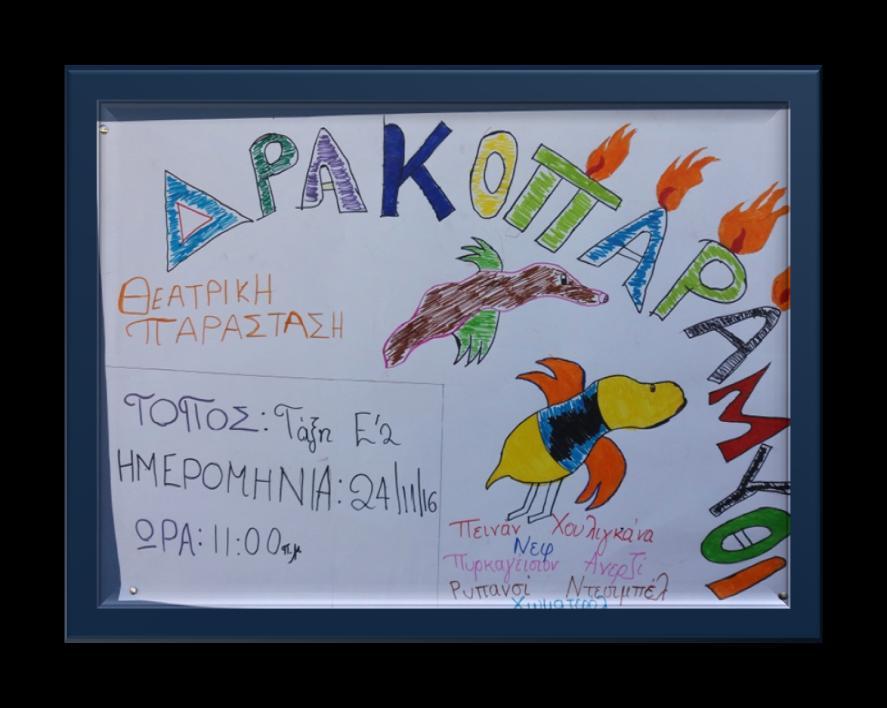 ΔΡΑΚΟΠΑΡΑΜΥΘΙ
ΘΕΑΤΡΙΚΗ
ΠΑΡΑΣΤΑΣΗ
ΤΟΠΟΣ: Τάξη Ε'2
ΗΜΕΡΟΜΗΝΙΑ: 24/11/16
ΩΡΑ: 11:00 π.μ
Πεινάν Χουλιγκάνα
Νεφ
Πυρκαγέισιον Ανερζί
Ρυπανσί Ντεσιμπέλ